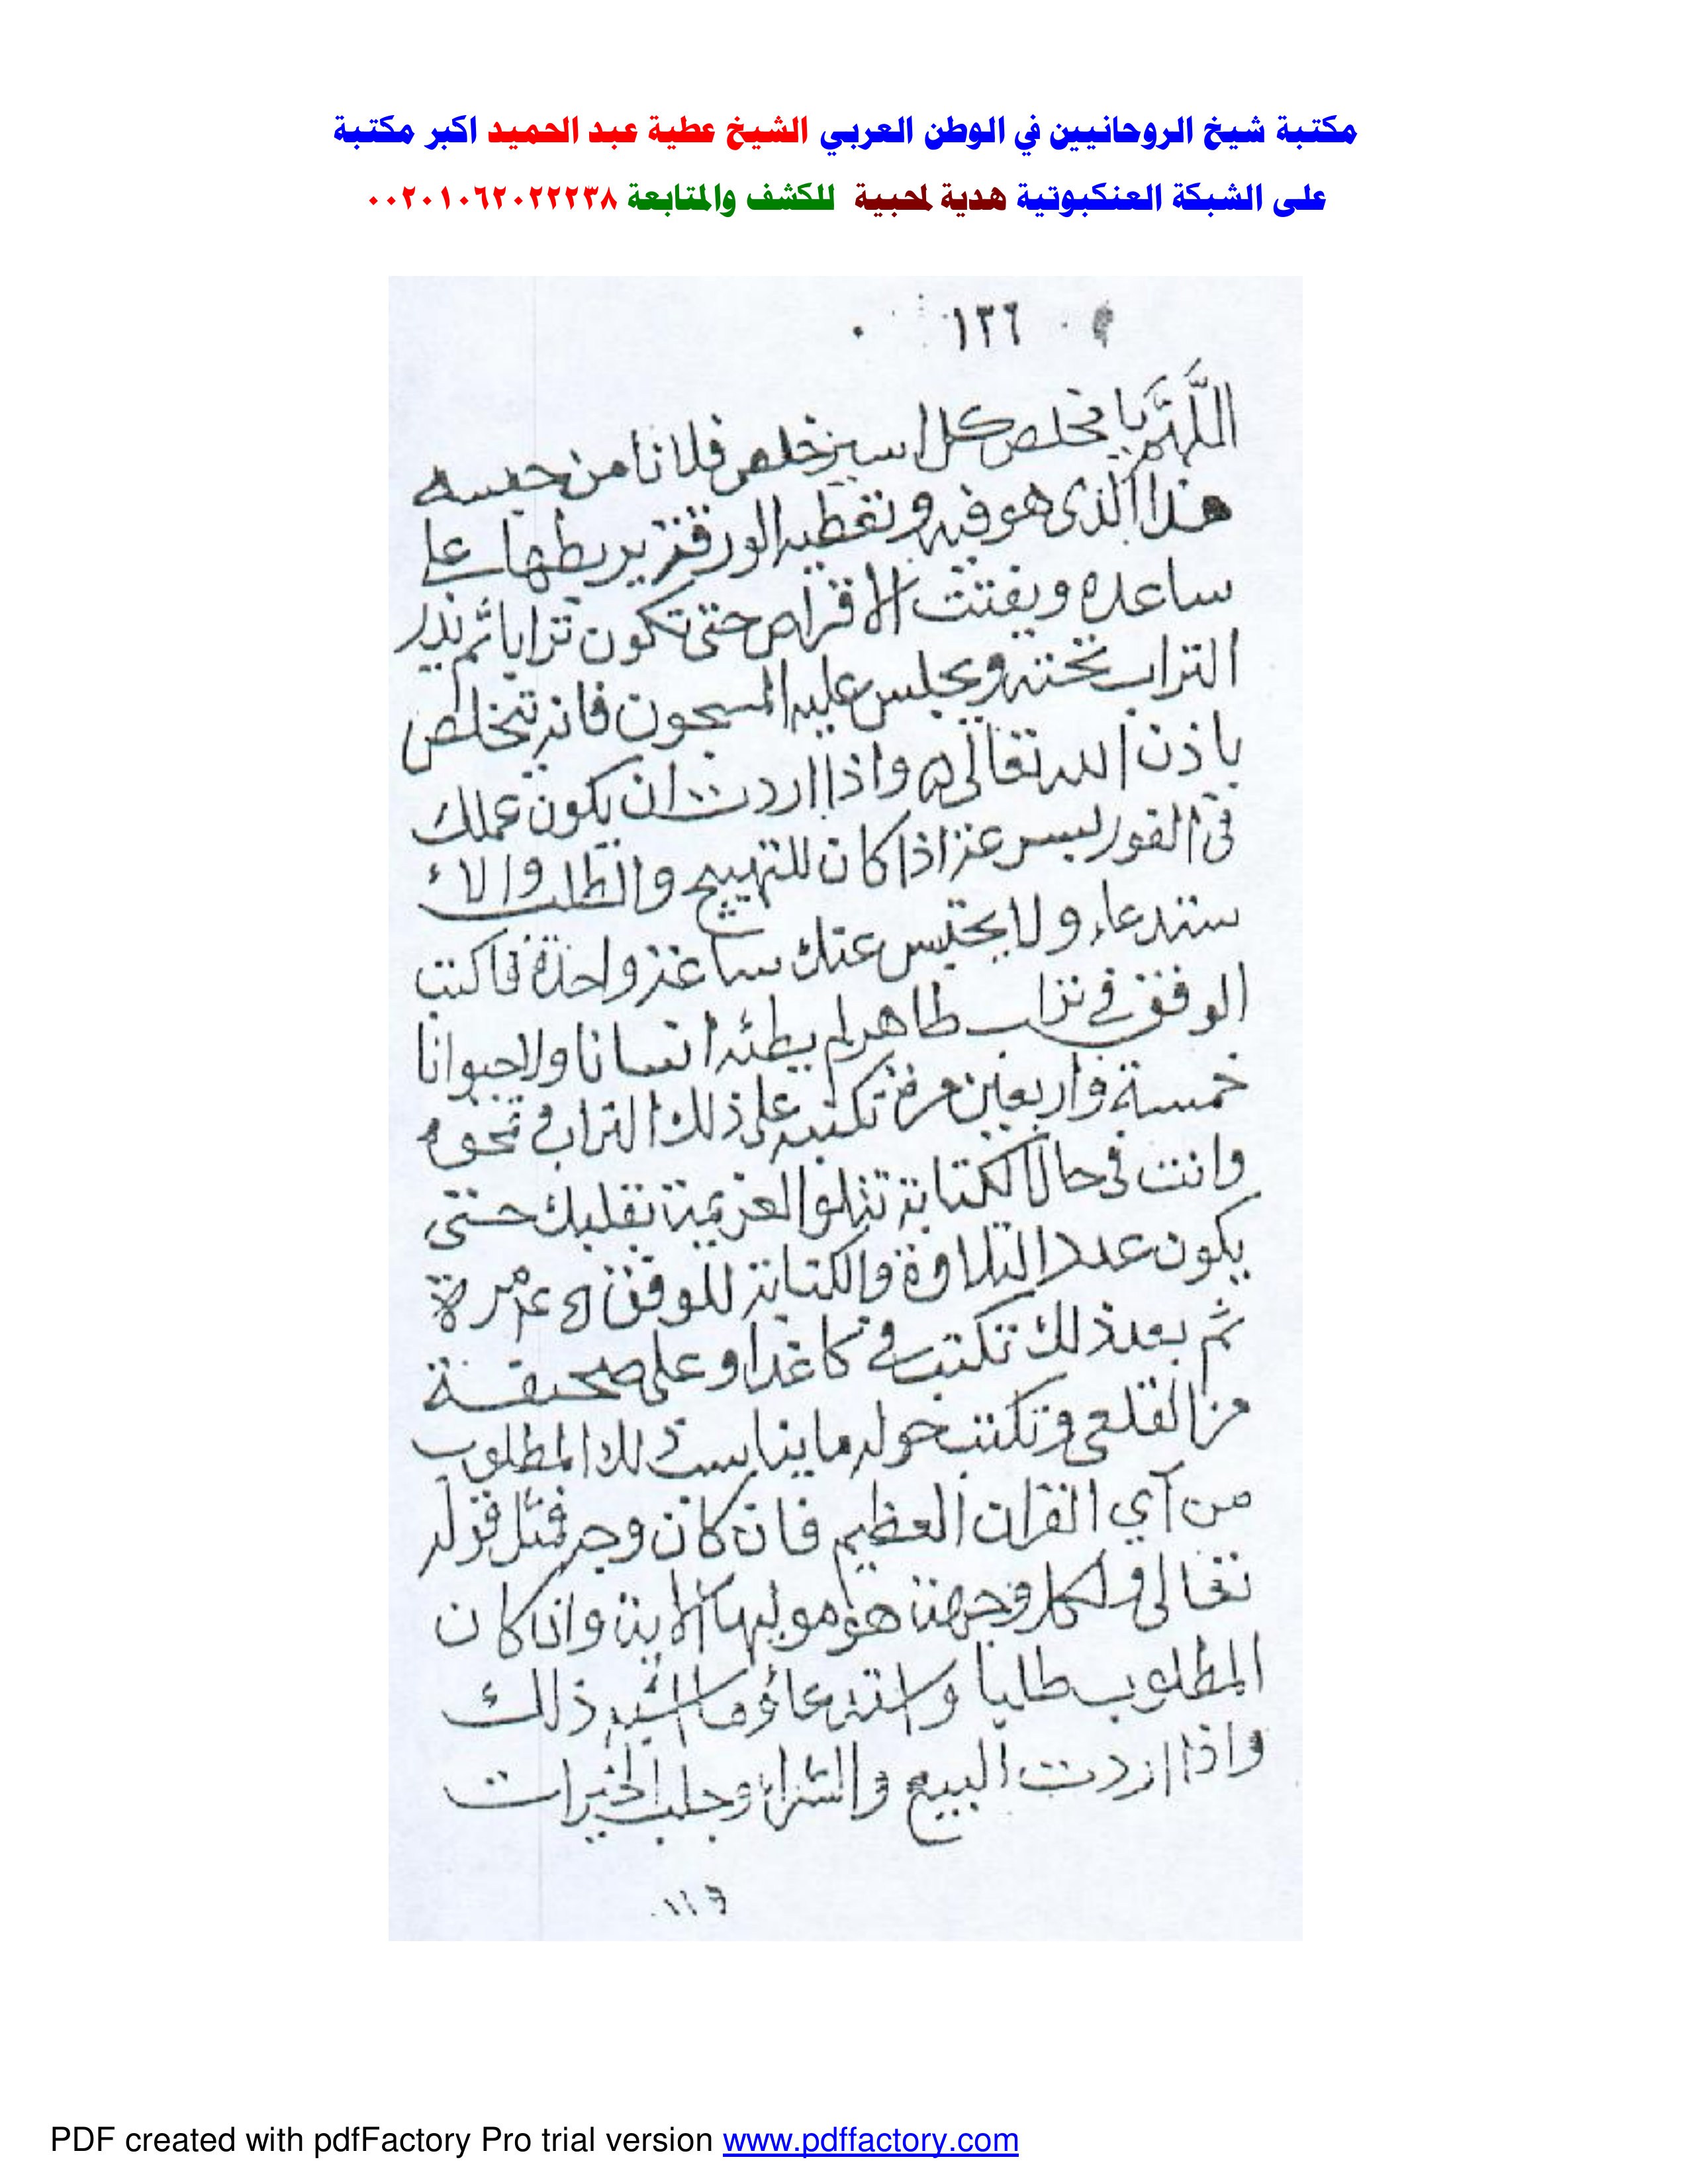 مكتبة شيخ الروحانيين في الوطن العربي الشيخ عطية عبد الحميد اكبر مكتبة
على الشبكة العنكبوتية هدية لمحبية للكشف والمتابعة ٠٠٢٠١٠٦٢٠٢٢٢٣٨
١٣٦
اللَّهم يا مخلص كل اسير خلص فلانا من حبسه
هذا الذى هو فيه وتعطيه الورقة يربطها على
ساعده ويفتت الاقراص حتى تكون ترابا ثم يذر
التراب تحته ويجلس عليه المسجون فانه يتخلص
باذن الله تعالى ه واذا اردت ان يكون عملك
فى الفور بسرعة اذا كان للتهييج والطلب والا
ستدعاء ولا يحتبس عنك ساعة واحدة فاكتب
الوفق في تراب طاهر لم يطئه انسانا ولا حيوانا
خمسة واربعين مرة تكتبه على ذلك التراب و تمحوه
وانت فى حال الكتابة تتلوا العزيمة بقلبك حتى
يكون عدد التلاوة والكتابة للوفق ٤٥ مرة
ثم بعد ذلك تكتب في كاغد او على صحيفة
من القلعى وتكتب حوله ما يناسب ذلك المطلوب
من آي القران العظيم فان كان وجه فتل قوله
تعالى ولكل وجهة هو موليها الاية وان كان
المطلوب طلبا واستدعاؤ وما اشبه ذلك
واذا اردت البيع والشراء وجلب الخيرات
PDF created with pdfFactory Pro trial version www.pdffactory.com